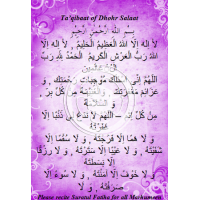 Ta'qibaat of Dhohr Salaat
بِسْمِ اللهِ الرَّحْمٰنِ الرَّحِيْمِ
لَا إِلٰهَ إِلَّا اللهُ الْعَظِيْمُ الْحَلِيْمُ ، لَا إِلٰهَ إِلَّا
اللهُ رَبُّ الْعَرْشِ الْكَرِيْمُ الْحَمْدُ لِلّٰهِ رَبِّ
الْعَالَمِيْنَ
اللّٰهُمَّ إِنِّي أَسْأَلُكَ مُوْجِبَاتِ رَحْمَتِكَ ، وَ
عَزَائِمَ مَغْفِرَتِكَ ، وَالْغَنِيْمَةَ مِنْ كُلِّ بِرٍّ ،
وَ السَّلَامَةَ
مِنْ كُلِّ إِثْمٍ ، اللّٰهُمَّ لَا تَدَعْ لِي ذَنْبًا إِلَّا
غَفَرْتَهُ
وَ لَا هَمًّا إِلَّا فَرَّجْتَهُ ، وَ لَا سُقْمًا إِلَّا
شَفَيْتَهُ ، وَ لَا عَيْبًا إِلَّا سَتَرْتَهُ ، وَ لَا رِزْقًا
إِلَّا بَسَطْتَهُ
وَ لَا خَوْفًا إِلَّا آمَنْتَهُ ، وَ لَا سُوْءً إِلَّا
صَرَفْتَهُ ، وَ لَا
Please recite Suratul Fatiha for all Marhumeen